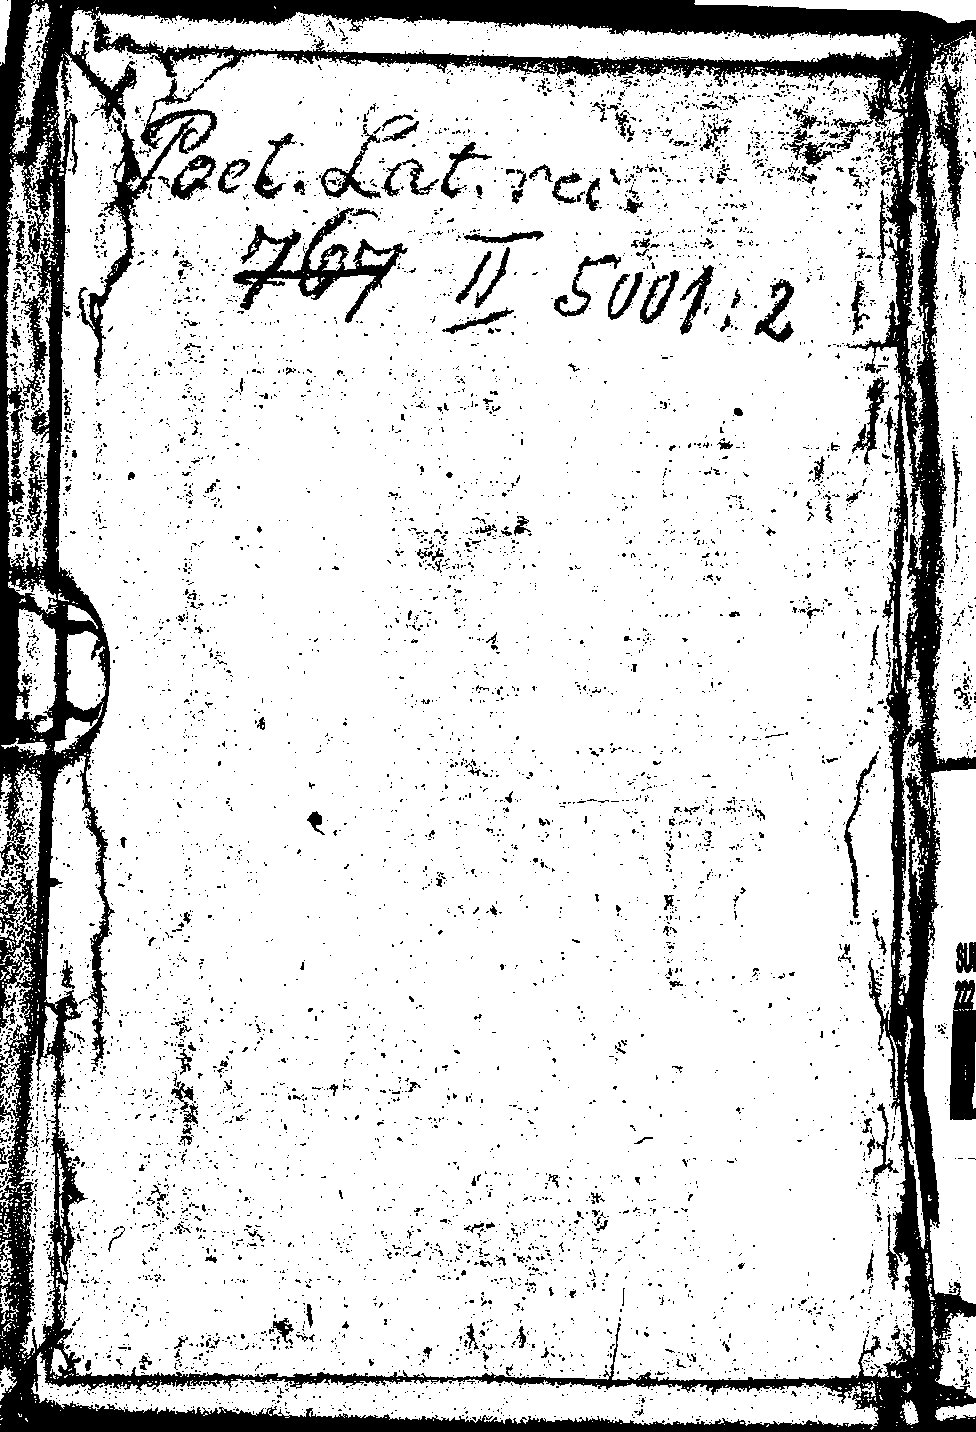 Poet. Lat. rec.
767 II 5001:2
SUB
222